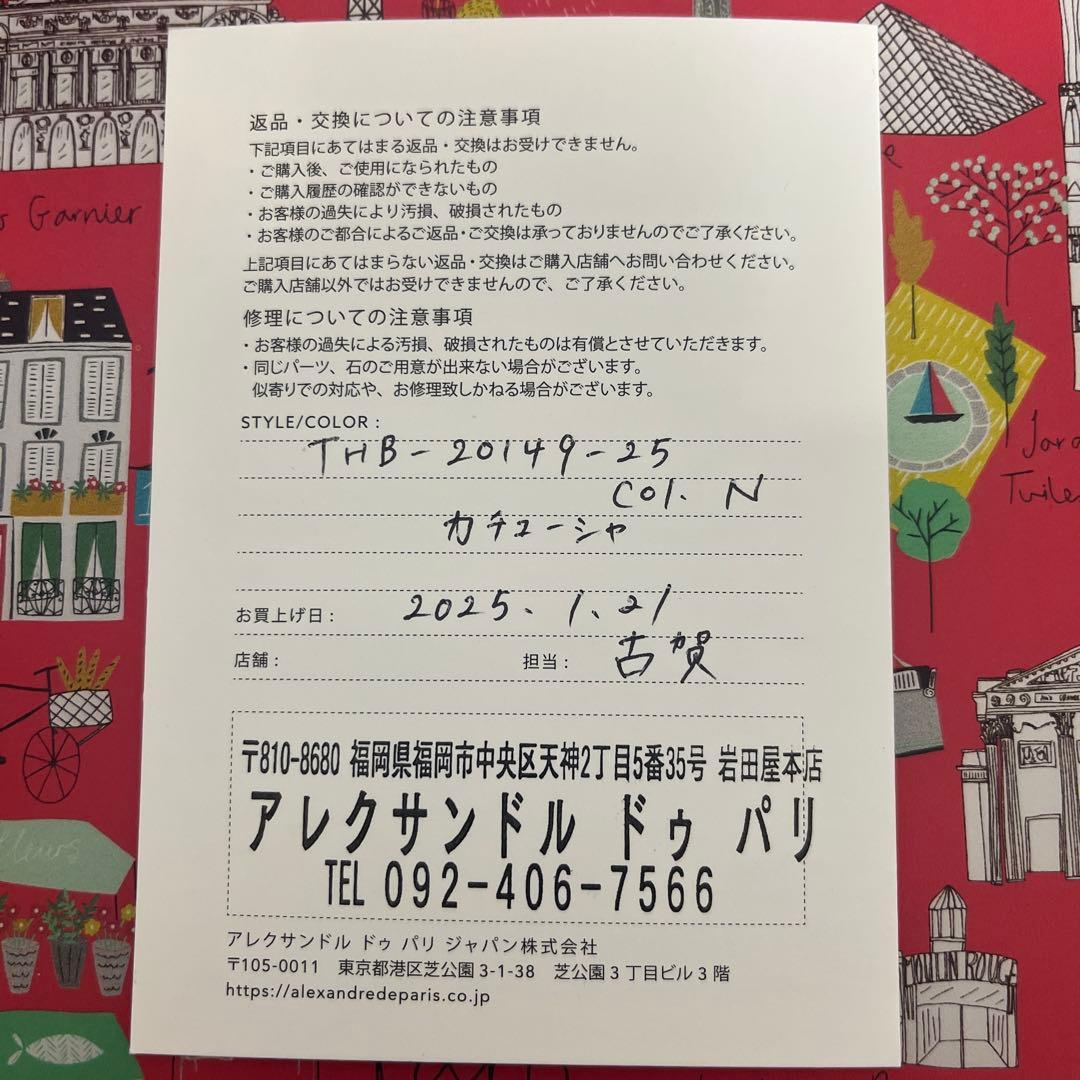 Garnier
返品・交換についての注意事項
下記項目にあてはまる返品・交換はお受けできません。
・ご購入後、ご使用になられたもの
・ご購入履歴の確認ができないもの
・お客様の過失により汚損、破損されたもの
・お客様のご都合によるご返品・ご交換は承っておりませんのでご了承ください。
上記項目にあてはまらない返品・交換はご購入店舗へお問い合わせください。
ご購入店舗以外ではお受けできませんので、ご了承ください。
修理についての注意事項
・お客様の過失による汚損、破損されたものは有償とさせていただきます。
・同じパーツ、石のご用意が出来ない場合がございます。
似寄りでの対応や、お修理致しかねる場合がございます。
STYLE/COLOR :
THB-20149-25
Col. N
カチューシャ
お買上げ日: 2025. 1. 21
店舗: 担当: 古賀
〒810-8680 福岡県福岡市中央区天神2丁目5番35号 岩田屋本店
アレクサンドル ドゥ パリ
TEL 092-406-7566
アレクサンドル ドゥ パリ ジャパン株式会社
〒105-0011 東京都港区芝公園3-1-38 芝公園3丁目ビル3階
https://alexandredeparis.co.jp
MOULIN ROUGE